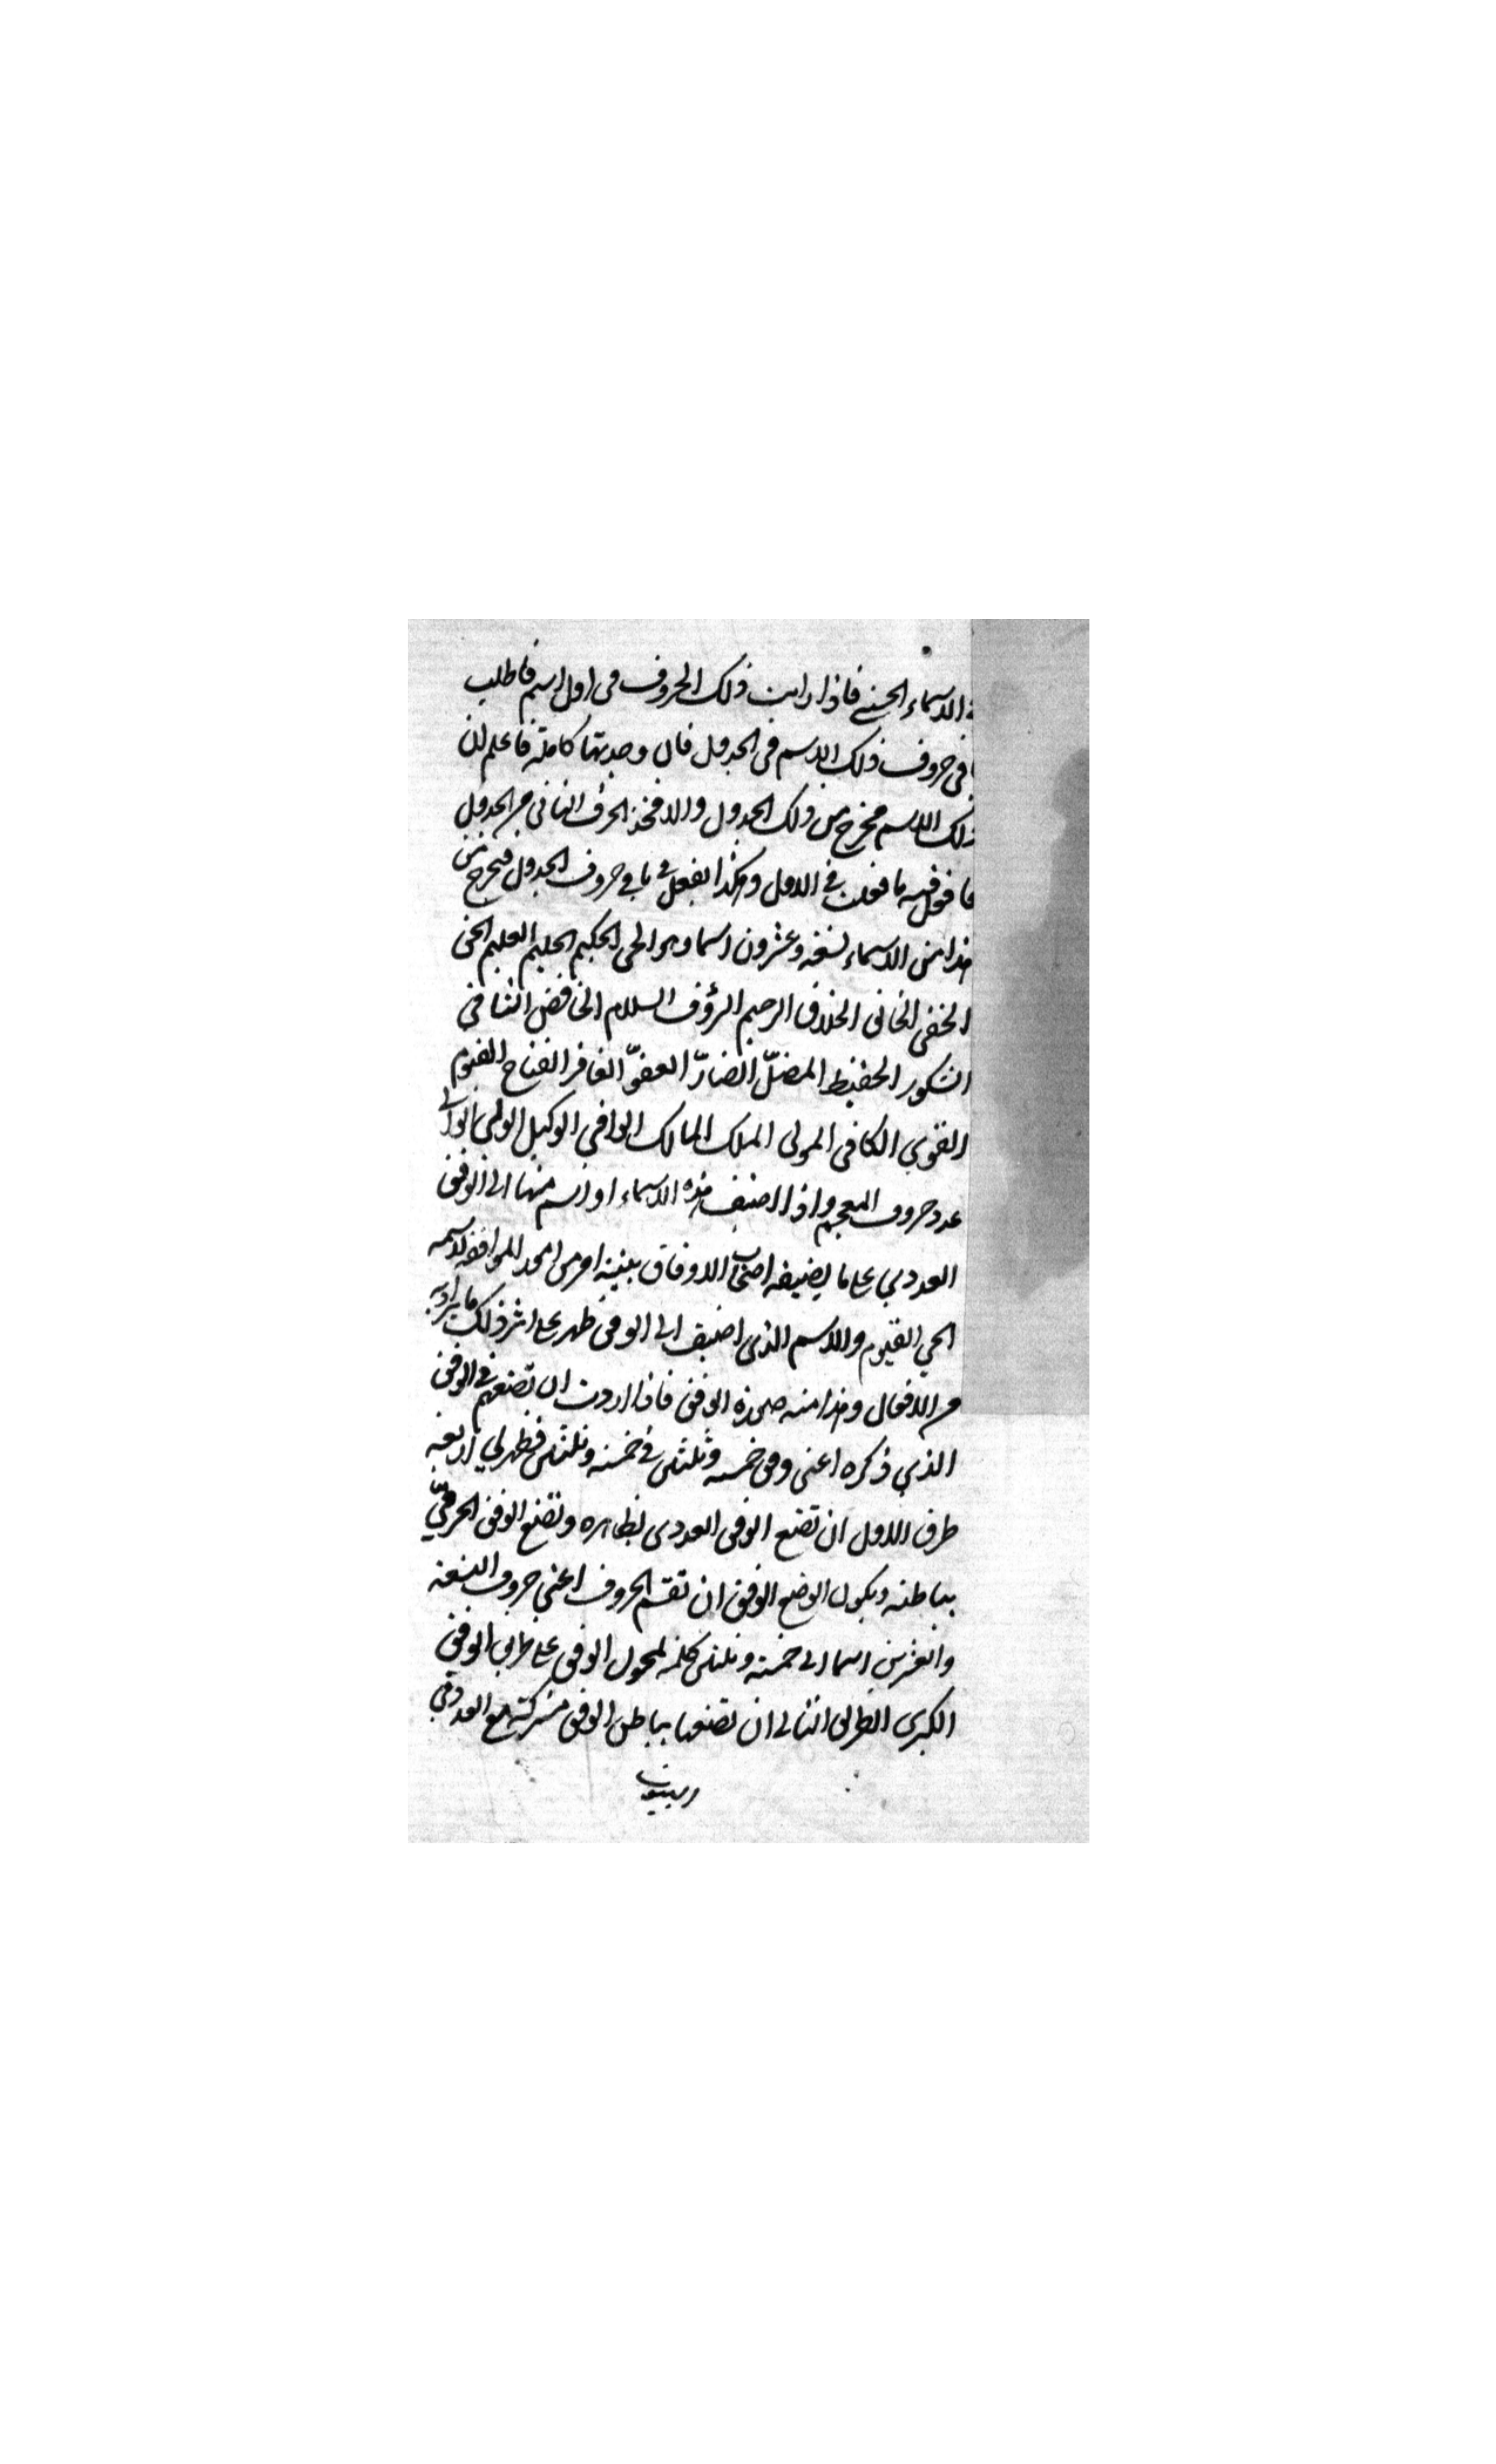 الاسماء الحسنى فاذا رايت ذلك الحروف في اول اسم فاطلب
في حروف ذلك الاسم في الجدول فان وجدتها كاملة فاعلم ان
ذلك الاسم مخرج من ذلك الجدول والا فخذ الحرف الثاني من الجدول
فافعل فيه ما فعلت في الاول وهكذا يفعل في باقي حروف الجدول فيخرج من
هذا من الاسماء تسعة وعشرون اسما وهو الحي الحكيم الحليم العليم الحق
الخفي الخالق الخلاق الرحيم الرؤف السلام الخافض الشافي
الشكور الحفيظ المضلّ الضارّ العفوّ الغافر الفتاح القيوم
القوي الكافي المولى الملك المالك الوافي الوكيل الولي الوالي
عدد حروف المعجم واذا اضيف هذه الاسماء او اسم منها الى الوفق
العددي على ما يضيفه اصحاب الاوفاق الموافق لاسمه
الحي القيوم والاسم الذي اضيف الى الوفق ظهر على اثر ذلك ما يراد به
من الافعال وهذا منه صورة الوفق فاذا اردت ان تضعهم في الوفق
الذي ذكره اعني وفق خمسة وثلثين في خمسة وثلثين فظهر لي اربعة
طرق الاول ان تضع الوفق العددي بظاهره وتضع الوفق الحرفيّ
بباطنه ويكون الوضع الوفق ان تقسم الحروف اعني حروف التسعة
والعشرين اسما الى خمسة وثلثين كلمة على الوفق
الكبرى الطريق الثاني ان تضعها بباطن الوفق مشركة مع العددي